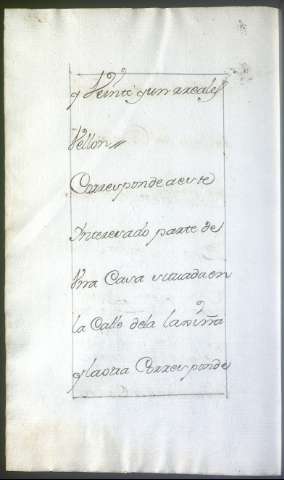 y Veinte y un rreales
Vellon //
Corresponde a este
Interesado parte de
Vna Casa situada en
la Calle de la
y la otra Corresponde